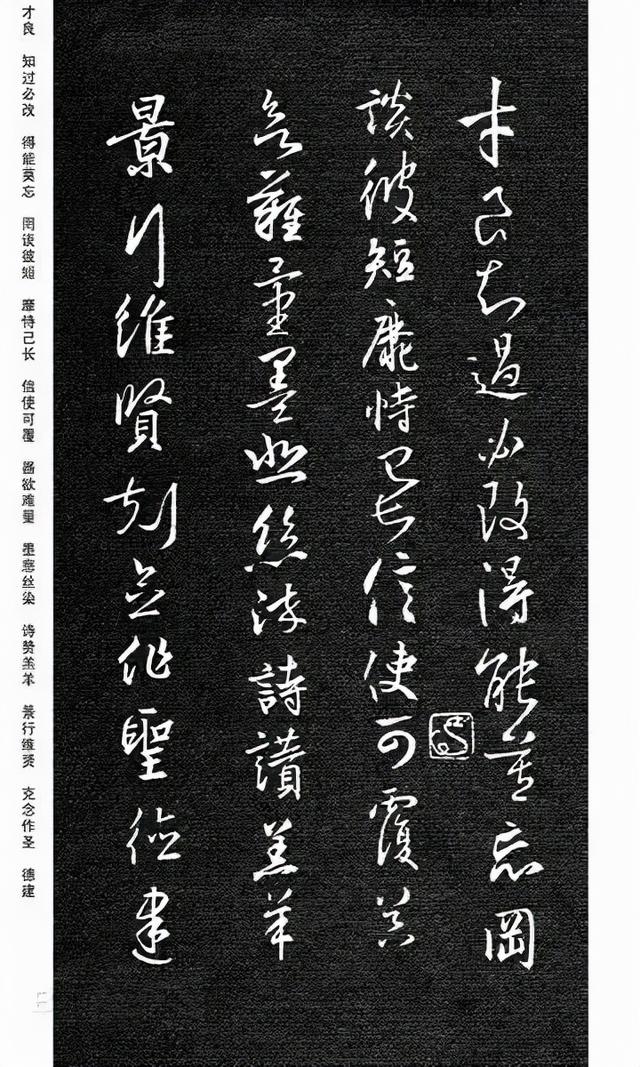 才良知過必改得能莫忘罔
談彼短靡恃己長信使可覆器
欲難量墨悲絲染詩讚羔羊
景行維賢剋念作聖德建
才良 知过必改 得能莫忘 罔谈彼短 靡恃己长 信使可覆 器欲难量 墨悲丝染 诗赞羔羊 景行维贤 克念作圣 德建